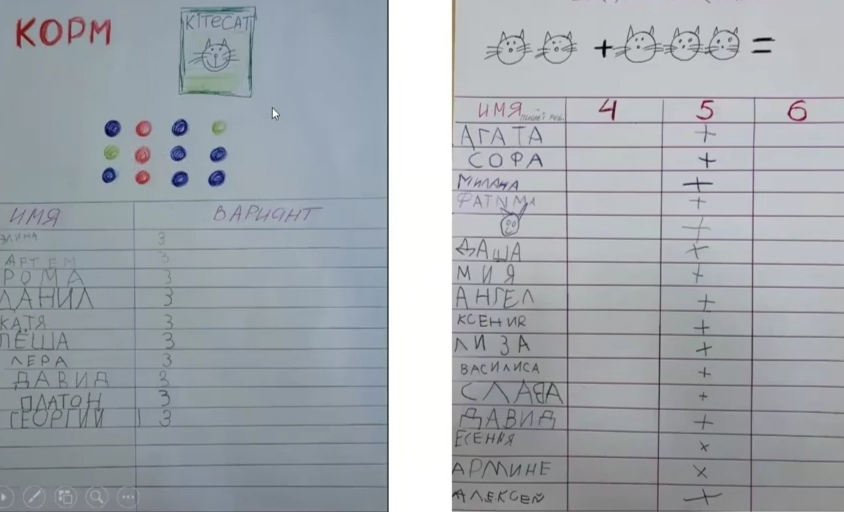 КОРМ
KITECAT
ИМЯ ВАРИАНТ
ЭЛИНА 3
АРТЕМ 3
РОМА 3
ДАНИЛ 3
КАТЯ 3
ЛЁША 3
ЛЕРА 3
ДАВИД 3
ПЛАТОН 3
ГЕОРГИЙ 3
+ =
ИМЯ 4 5 6
АГАТА +
СОФА +
МИЛАНА +
ФАТИМА +
+
ДАША +
МИЯ +
АНГЕЛ +
КСЕНИЯ +
ЛИЗА +
ВАСИЛИСА +
СЛАВА +
ДАВИД +
ЕСЕНИЯ ×
АРМИНЕ ×
АЛЕКСЕЙ +